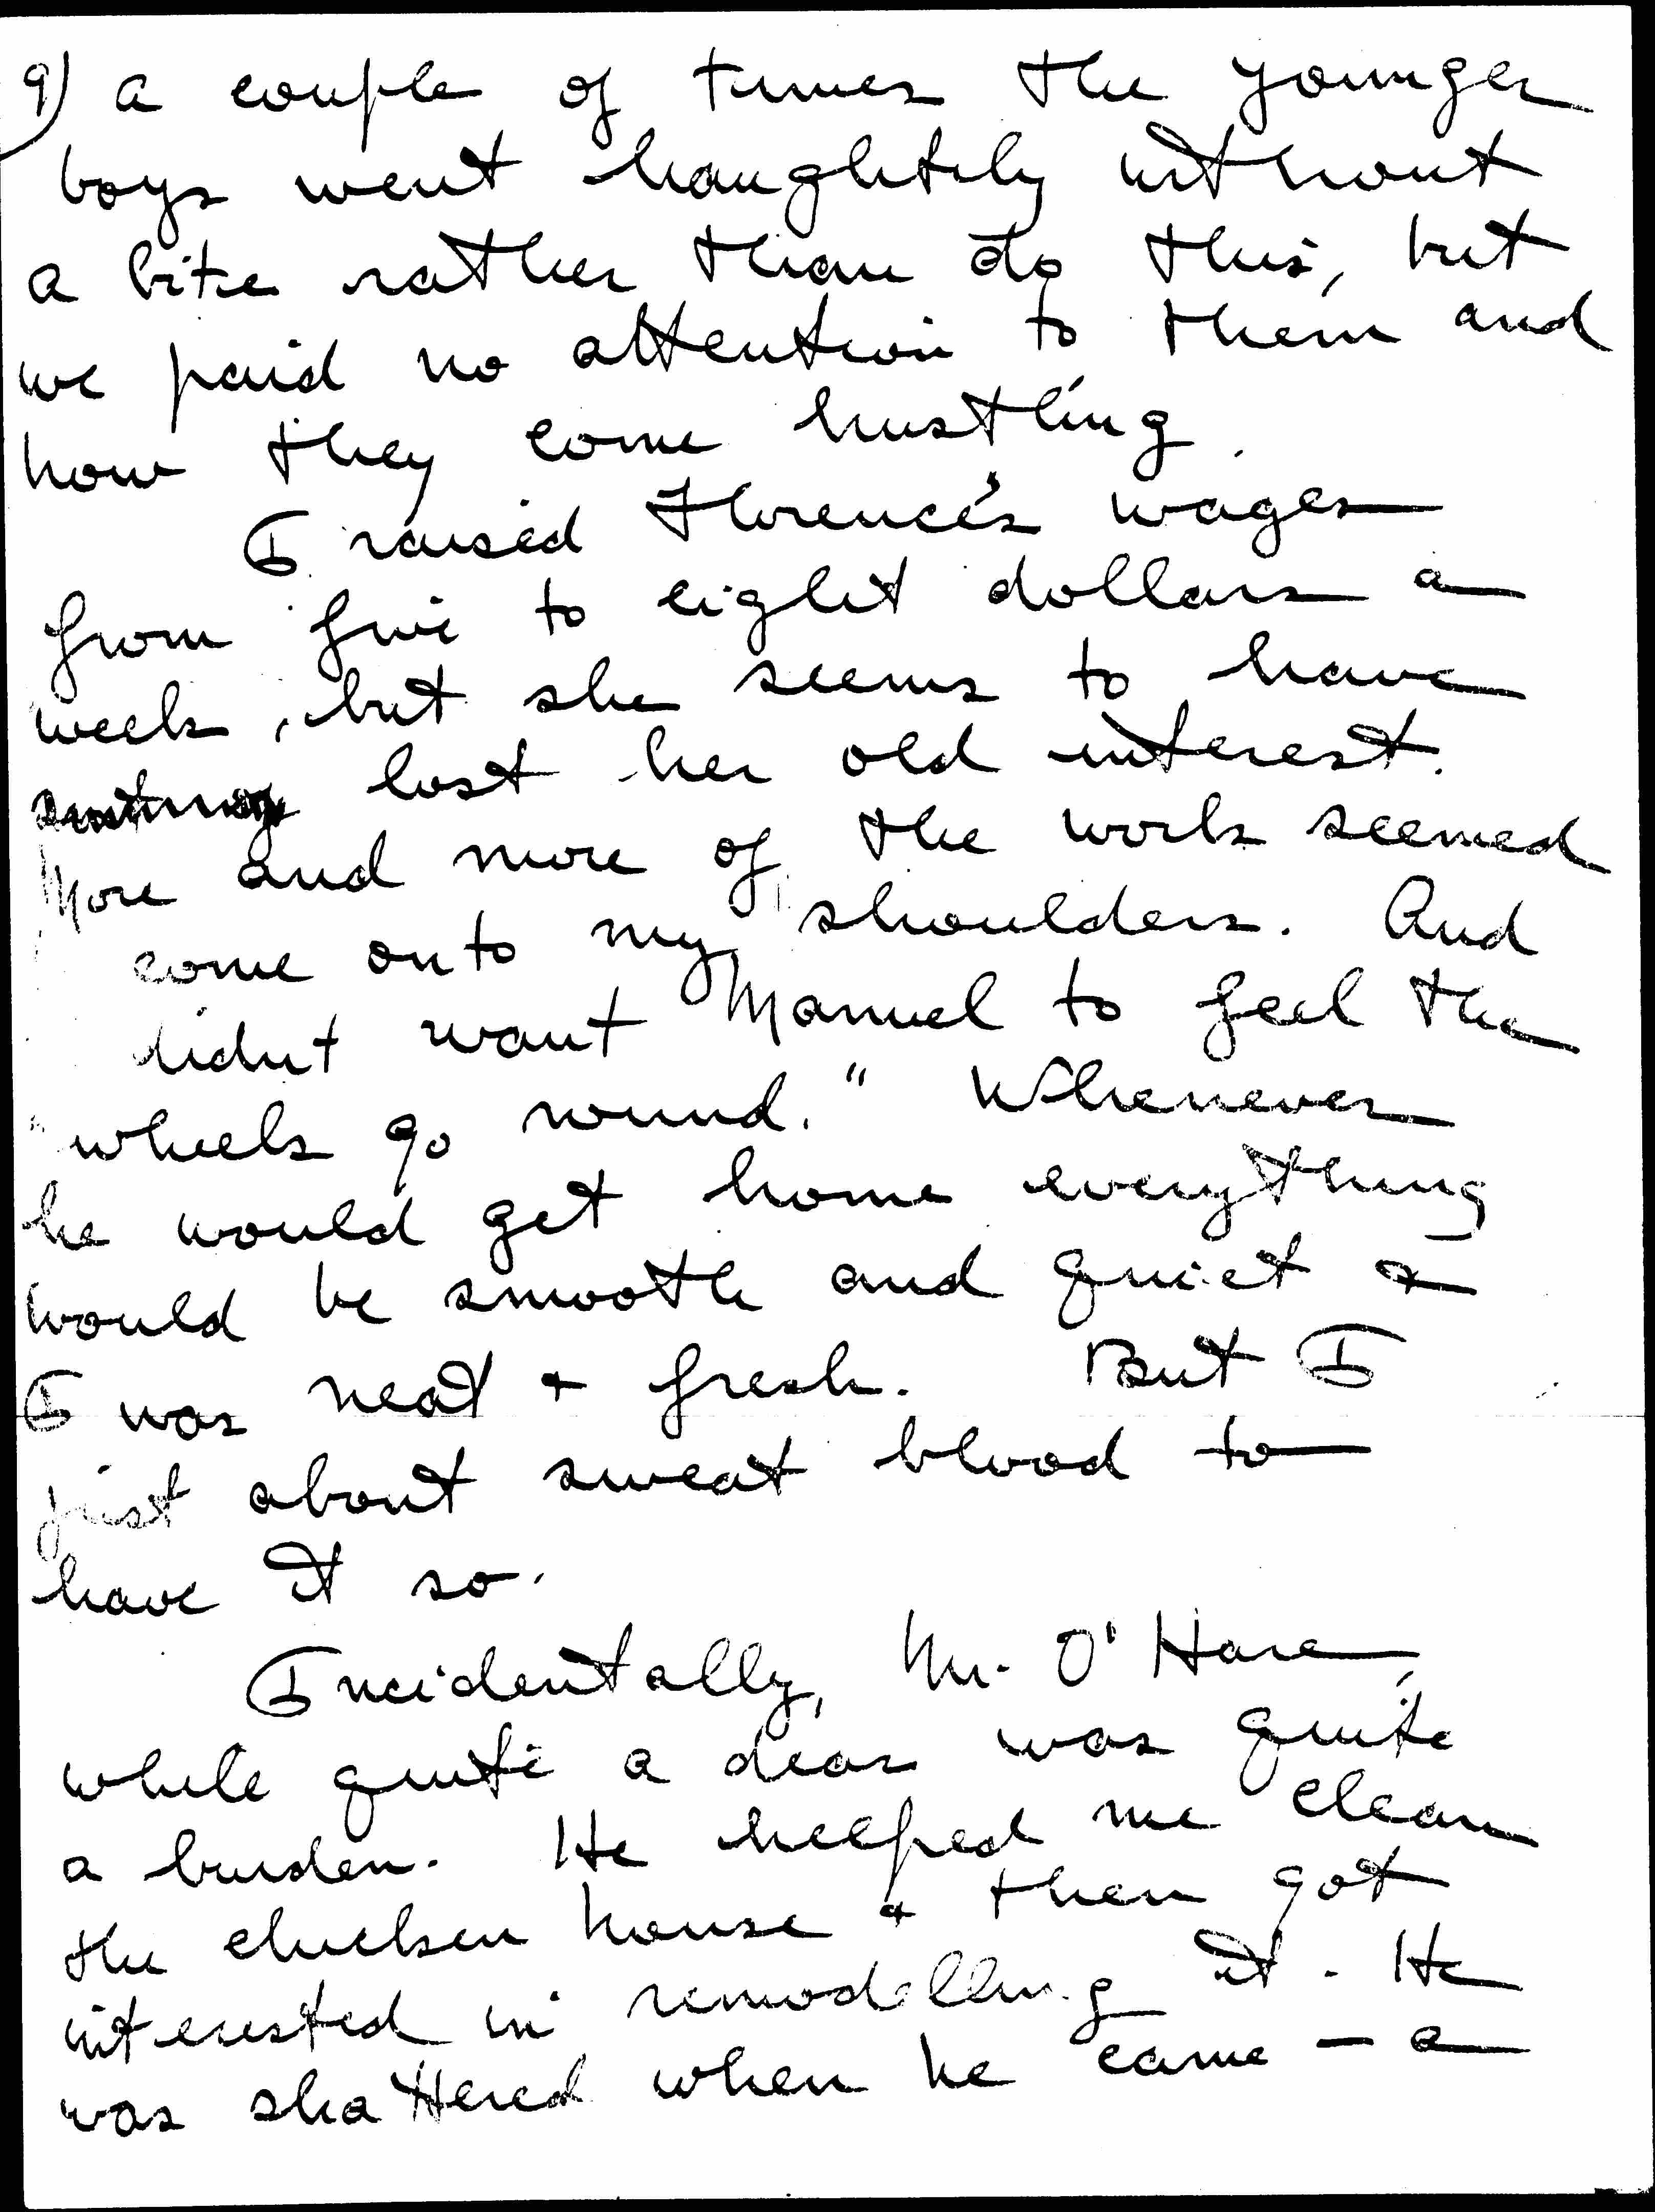 9) a couple of times the younger
boys went haughtily without
a bite rather than do this, but
we paid no attention to them and
how they come hustling.
I raised Florence's wages
from five to eight dollars a
week, but she seems to have
lost her old interest.
More and more of the work seemed
come onto my shoulders. And
didnt want Manuel to feel the
"wheels go round." Whenever
he would get home everything
would be smooth and quiet &
I was neat & fresh. But I
just about sweat blood to
have it so.
Incidentally, Mr. O'Hare,
while quite a dear was quite
a burden. He helped me clean
the chicken house & then got
interested in remodelling it. He
was shattered when he came – a